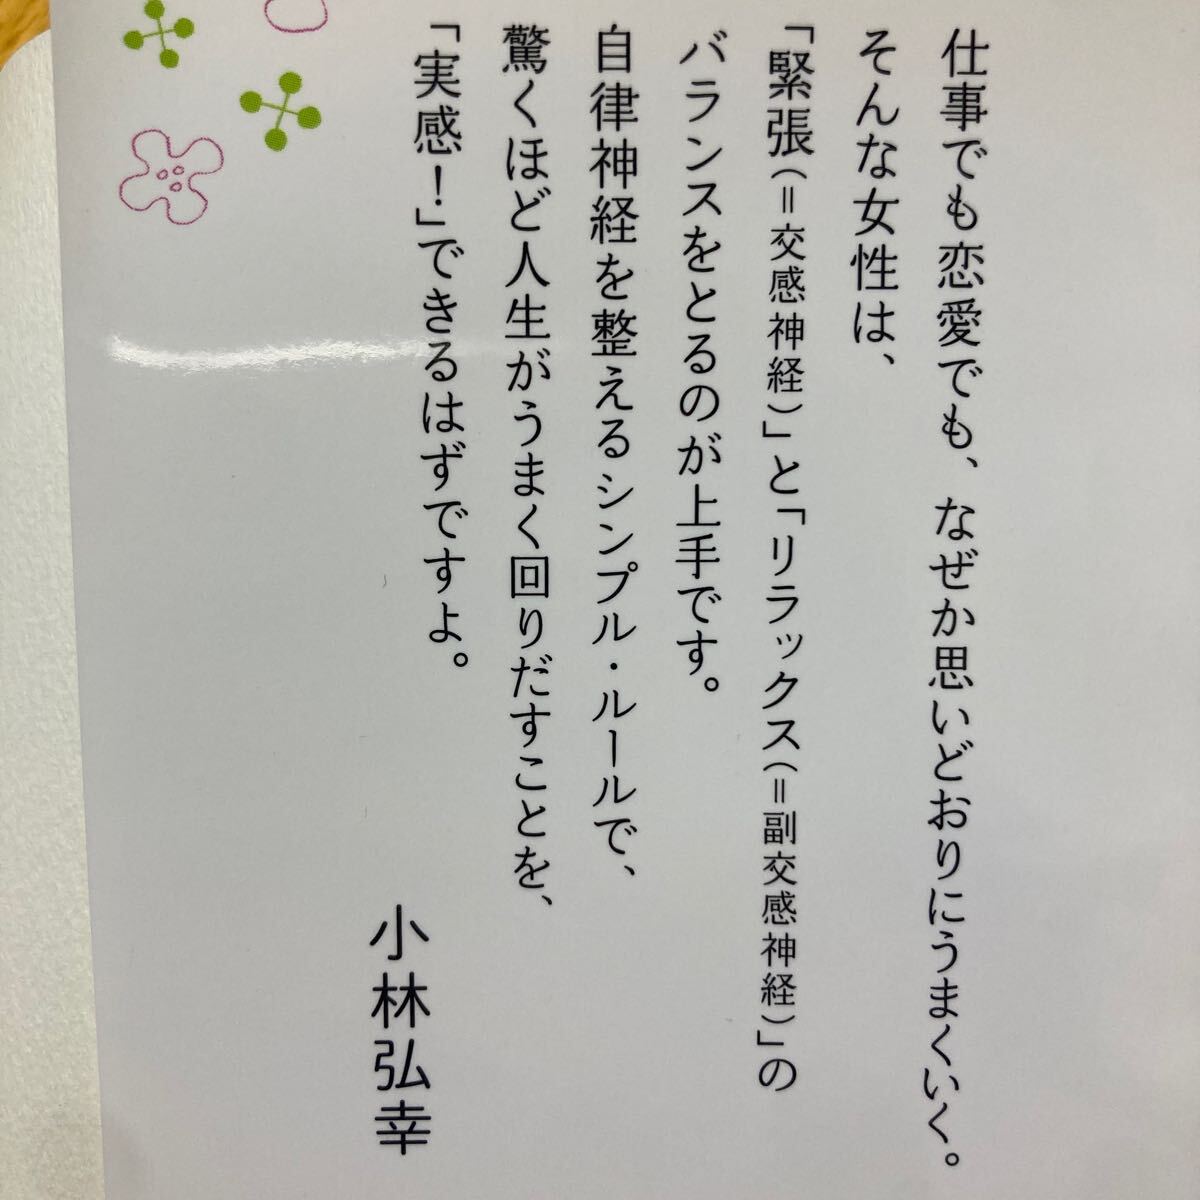 仕事でも恋愛でも、なぜか思いどおりにうまくいく。
そんな女性は、
「緊張（＝交感神経）」と「リラックス（＝副交感神経）」の
バランスをとるのが上手です。
自律神経を整えるシンプル・ルールで、
驚くほど人生がうまく回りだすことを、
「実感！」できるはずですよ。
小林弘幸